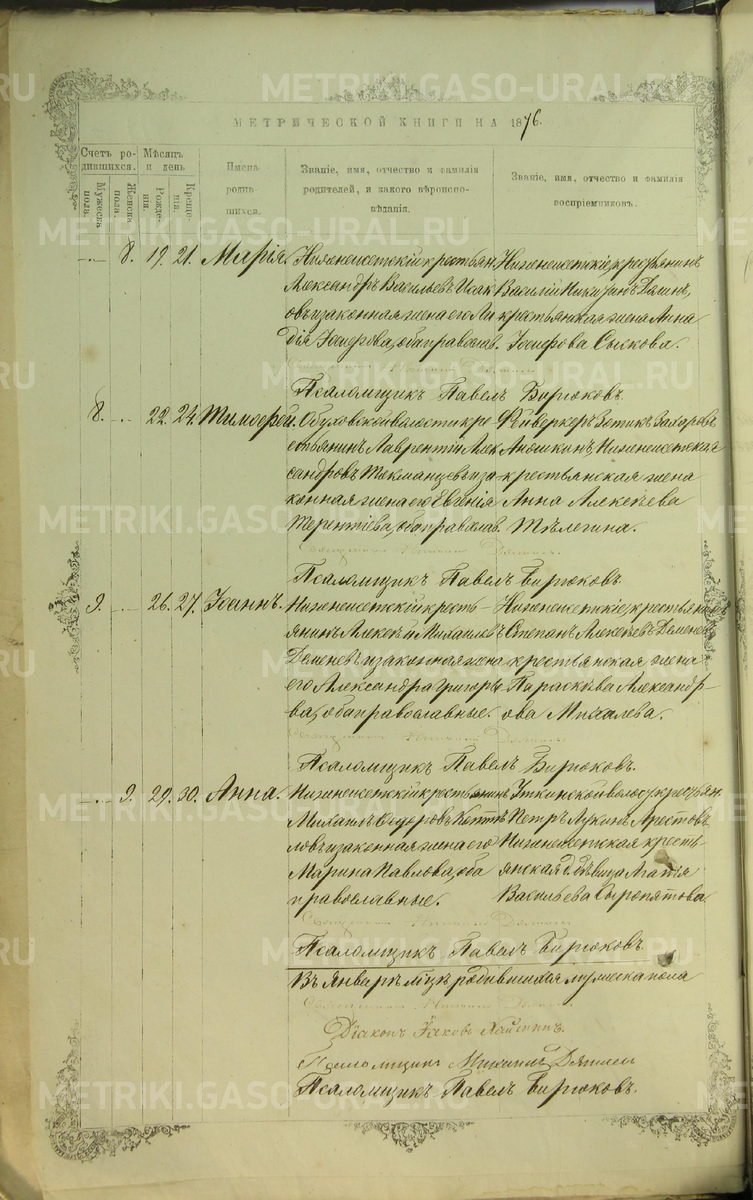 МЕТРИЧЕСКОЙ КНИГИ НА 1876.
Счетъ родившихся.
Мужеска пола.
Женска пола.
Мѣсяцъ и день
Рожденія.
Крещенія.
Имена родившихся.
Званіе, имя, отчество и фамилія родителей, и какого вѣроисповѣданія.
Званіе, имя, отчество и фамилія воспріемниковъ.
8. 19. 21. Марія.
Нижнеисетскій крестьян.
Александръ Васильевъ Исак
овъ и законная жена его Ли
дія , оба правосл.
Нижнеисетскіе, крестьянинъ
Василій
крестьянская жена Анна
Сыскова.
Псаломщикъ Павелъ Бирюковъ.
8. 22. 24. Тимофей.
Обуховской волости кре
стьянинъ Лаврентій Алек
сандровъ Токманцевъ и за
конная жена его Евгенія
Терентіева, оба правосл.
Фейверкеръ Зотикъ Захаровъ
Аношкинъ, Нижнеисетская
крестьянская жена
Анна Алексѣева
Телегина.
Псаломщикъ Павелъ Бирюковъ
9. 26. 27. Іоаннъ.
Нижнеисетскій кресть
янинъ Алексѣй Михаилевъ
Деменевъ и законная жена
его Александра Григорье
ва, оба православные.
Нижнеисетскіе, крестьянинъ
Степанъ Алексѣевъ Деменев
крестьянская жена
Параскева Александр
ова Михалева.
Псаломщикъ Павелъ Бирюковъ.
9. 29. 30. Анна.
Нижнеисетскій крестьянинъ
Михаилъ Ѳедоровъ
ловъ и законная жена его
Марина Павлова, оба
православные.
Уткинской волос. крестьян.
Петръ Лукинъ Аристов
Нижнеисетская кресть
янская дѣвица Агатья
Васильева Сыропятова
Псаломщикъ Павелъ Бирюковъ.
Въ Январѣ мцѣ родившихся мужеска пола
Діаконъ Іаковъ
Псаломщикъ Михаилъ
Псаломщикъ Павелъ Бирюковъ.
METRIKI.GASO-URAL.RU